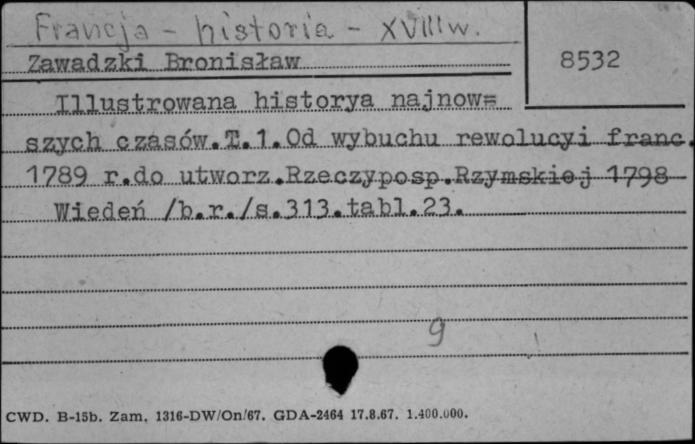 Francja - historia - XVIII w.
Zawadzki Bronisław
8532
Illustrowana historya najnow=
szych czasów.T.1.Od wybuchu rewolucyi franc.
1789 r.do utworz.Rzeczyposp.Rzymskiej 1798
Wiedeń /b.r./s.313.tabl.23.
9
CWD. B-15b. Zam. 1316-DW/On/67. GDA-2464 17.8.67. 1.400.000.